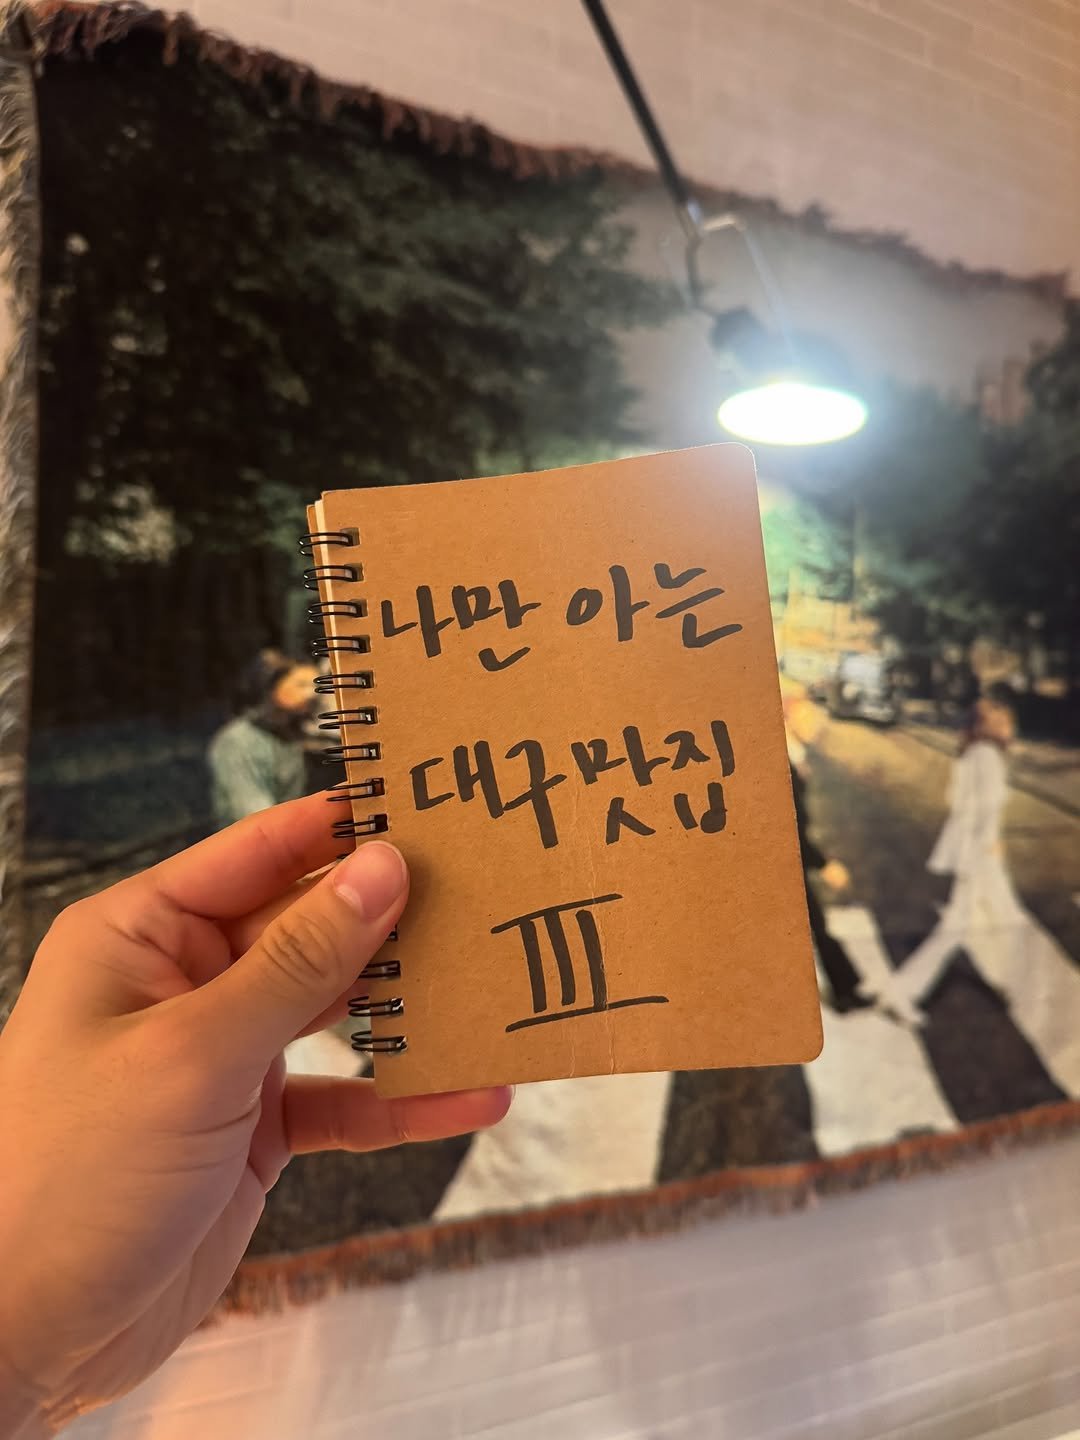 나만 아는
대구맛집
III